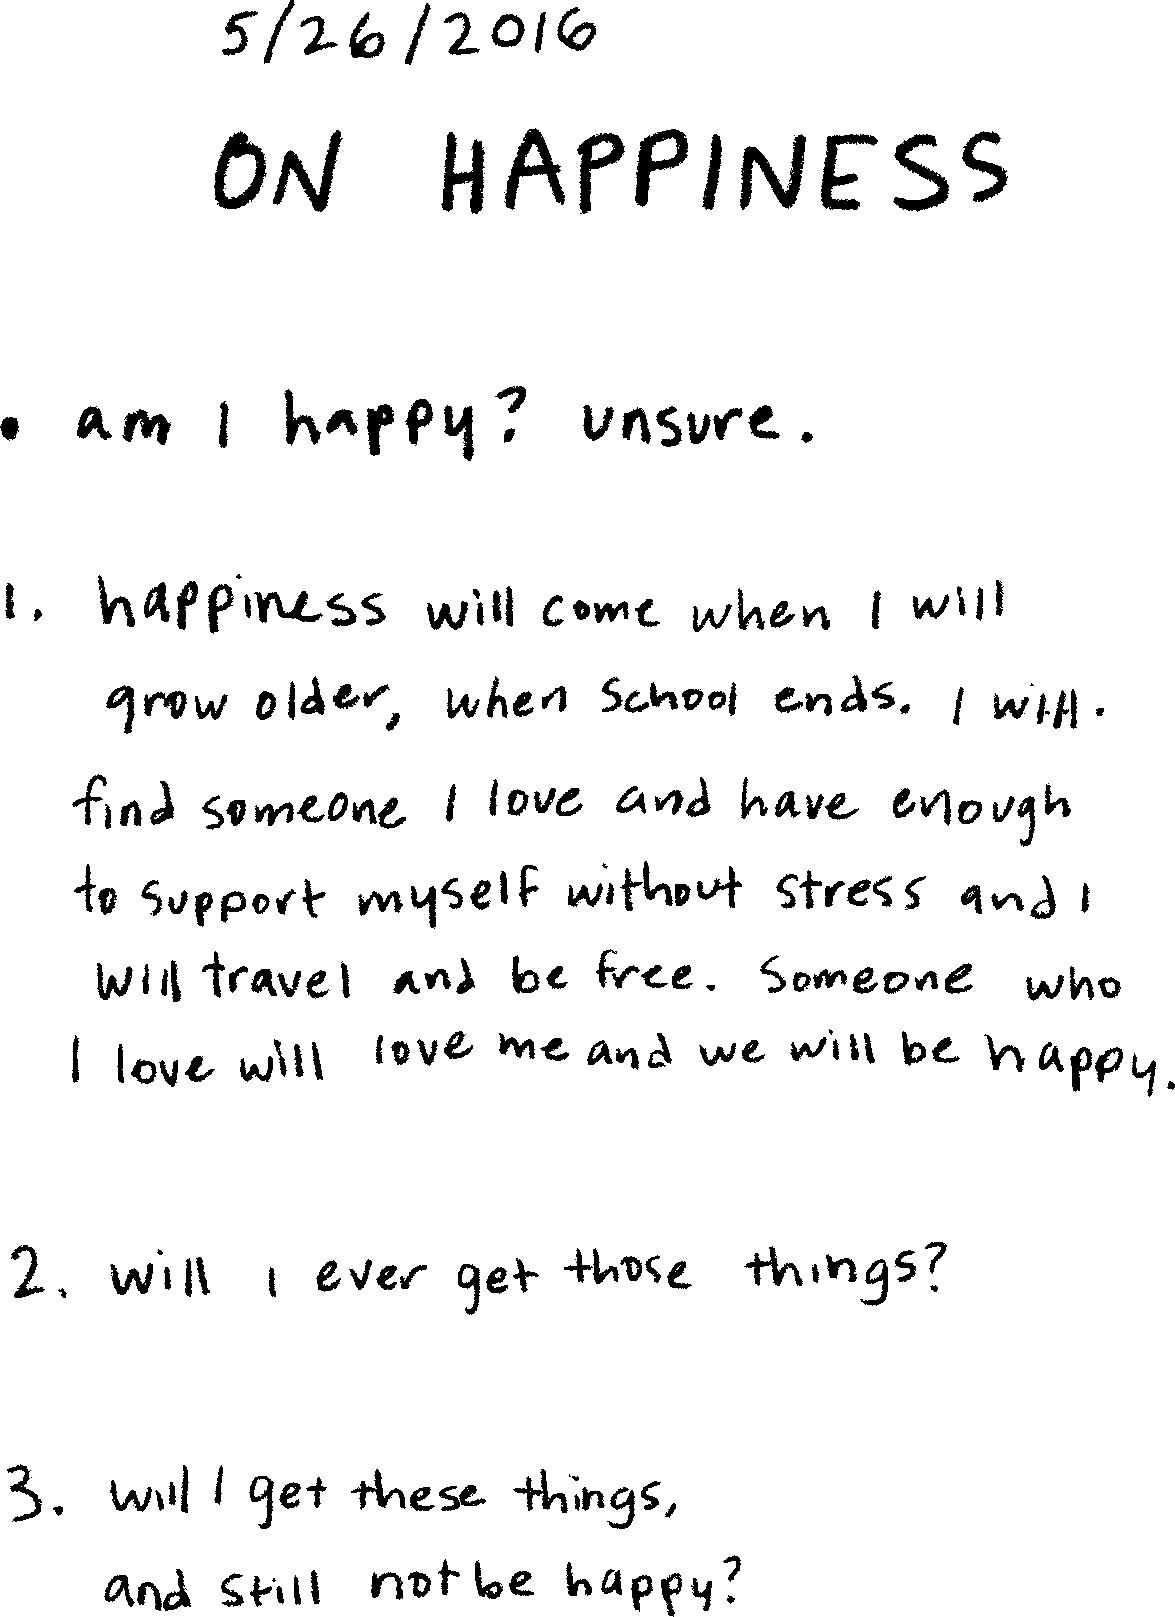 5/26/2016
ON HAPPINESS
• am I happy? unsure.
1. happiness will come when I will
grow older, when school ends. I will.
find someone I love and have enough
to support myself without stress and I
will travel and be free. Someone who
I love will love me and we will be happy.
2. will I ever get those things?
3. will I get these things,
and still not be happy?